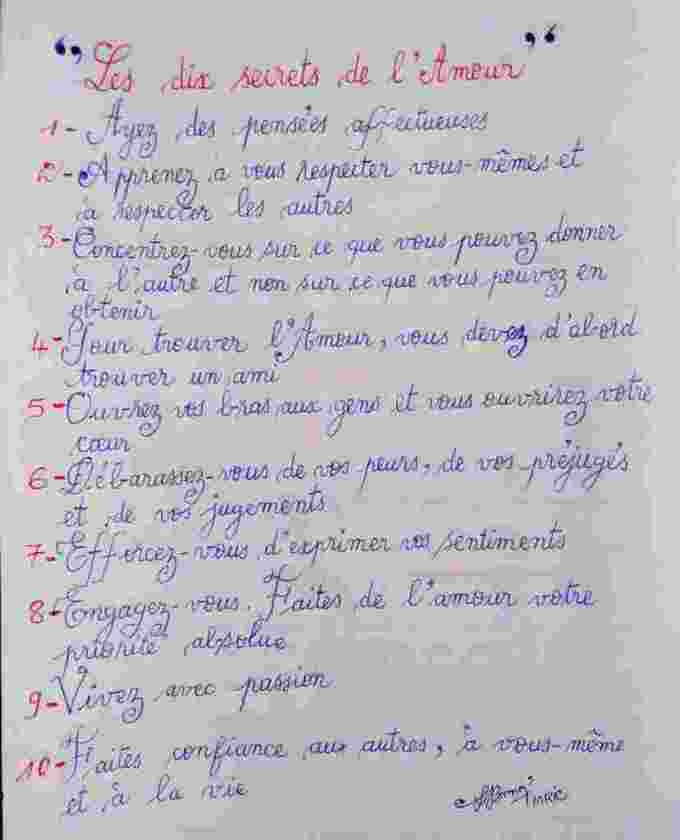 " Les dix secrets de l'Amour "
1- Ayez des pensées affectueuses
2- Apprenez à vous respecter vous-mêmes et
à respecter les autres
3- Concentrez-vous sur ce que vous pouvez donner
à l'autre et non sur ce que vous pouvez en
obtenir
4- Pour trouver l'Amour, vous devez d'abord
trouver un ami
5- Ouvrez vos bras aux gens et vous ouvrirez votre
cœur
6- Débarassez-vous de vos peurs, de vos préjugés
et de vos jugements
7- Efforcez-vous d'exprimer vos sentiments
8- Engagez-vous. Faites de l'amour votre
priorité absolue
9- Vivez avec passion
10- Faites confiance aux autres, à vous-même
et à la vie